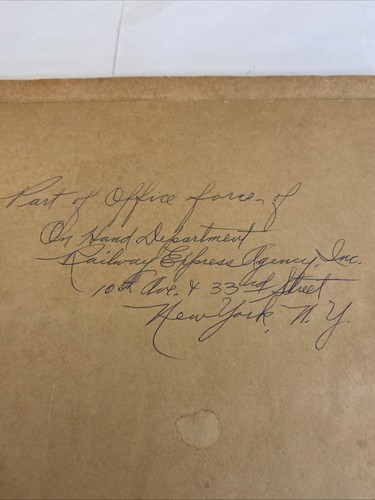 Part of Office force of
On Hand Department
Railway Express Agency, Inc.
10th Ave. & 33rd Street
New York, N. Y.